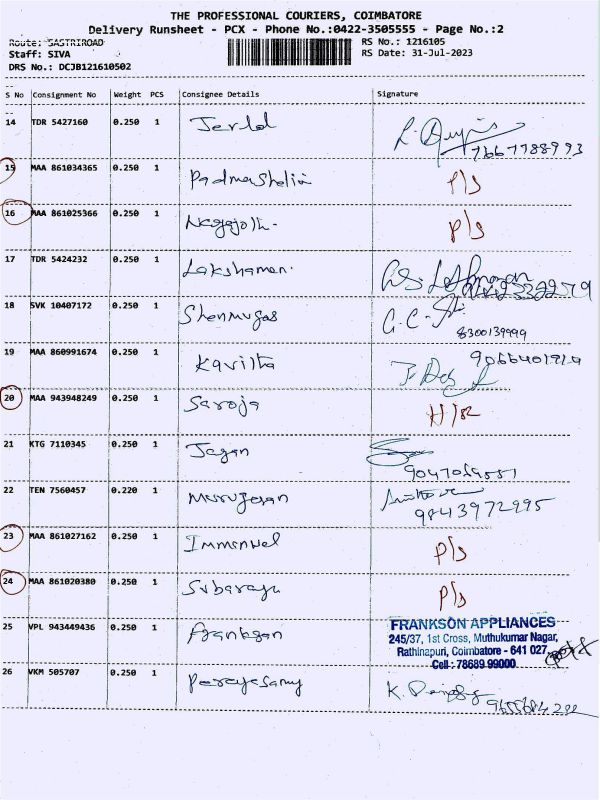 THE PROFESSIONAL COURIERS, COIMBATORE
Delivery Runsheet - PCX - Phone No.:0422-3505555 - Page No.:2
Route: SASTRIROAD
RS No.: 1216105
Staff: SIVA
RS Date: 31-Jul-2023
DRS No.: DCJB121610502
S No Consignment No Weight PCS Consignee Details Signature
14 TDR 5427160 0.250 1 Jerld
7667788993
15 MAA 861034365 0.250 1 Padmashelia P/s
16 MAA 861025366 0.250 1 Nagajoth. P/s
17 TDR 5424232 0.250 1 Lakshaman.
18 SVK 10407172 0.250 1 Shenmugas G.C.
8300139999
19 MAA 860991674 0.250 1 Kavitha
20 MAA 943948249 0.250 1 Saroja
21 KTG 7110345 0.250 1 Jagan
22 TEN 7560457 0.220 1 Murugesan
9843972995
23 MAA 861027162 0.250 1 Immanuel P/s
24 MAA 861020380 0.250 1 Subaraya P/s
25 VPL 943449436 0.250 1 Frankson FRANKSON APPLIANCES
245/37, 1st Cross, Muthukumar Nagar,
Rathinapuri, Coimbatore - 641 027
Cell : 78689 99000
26 VKM 505707 0.250 1 K.